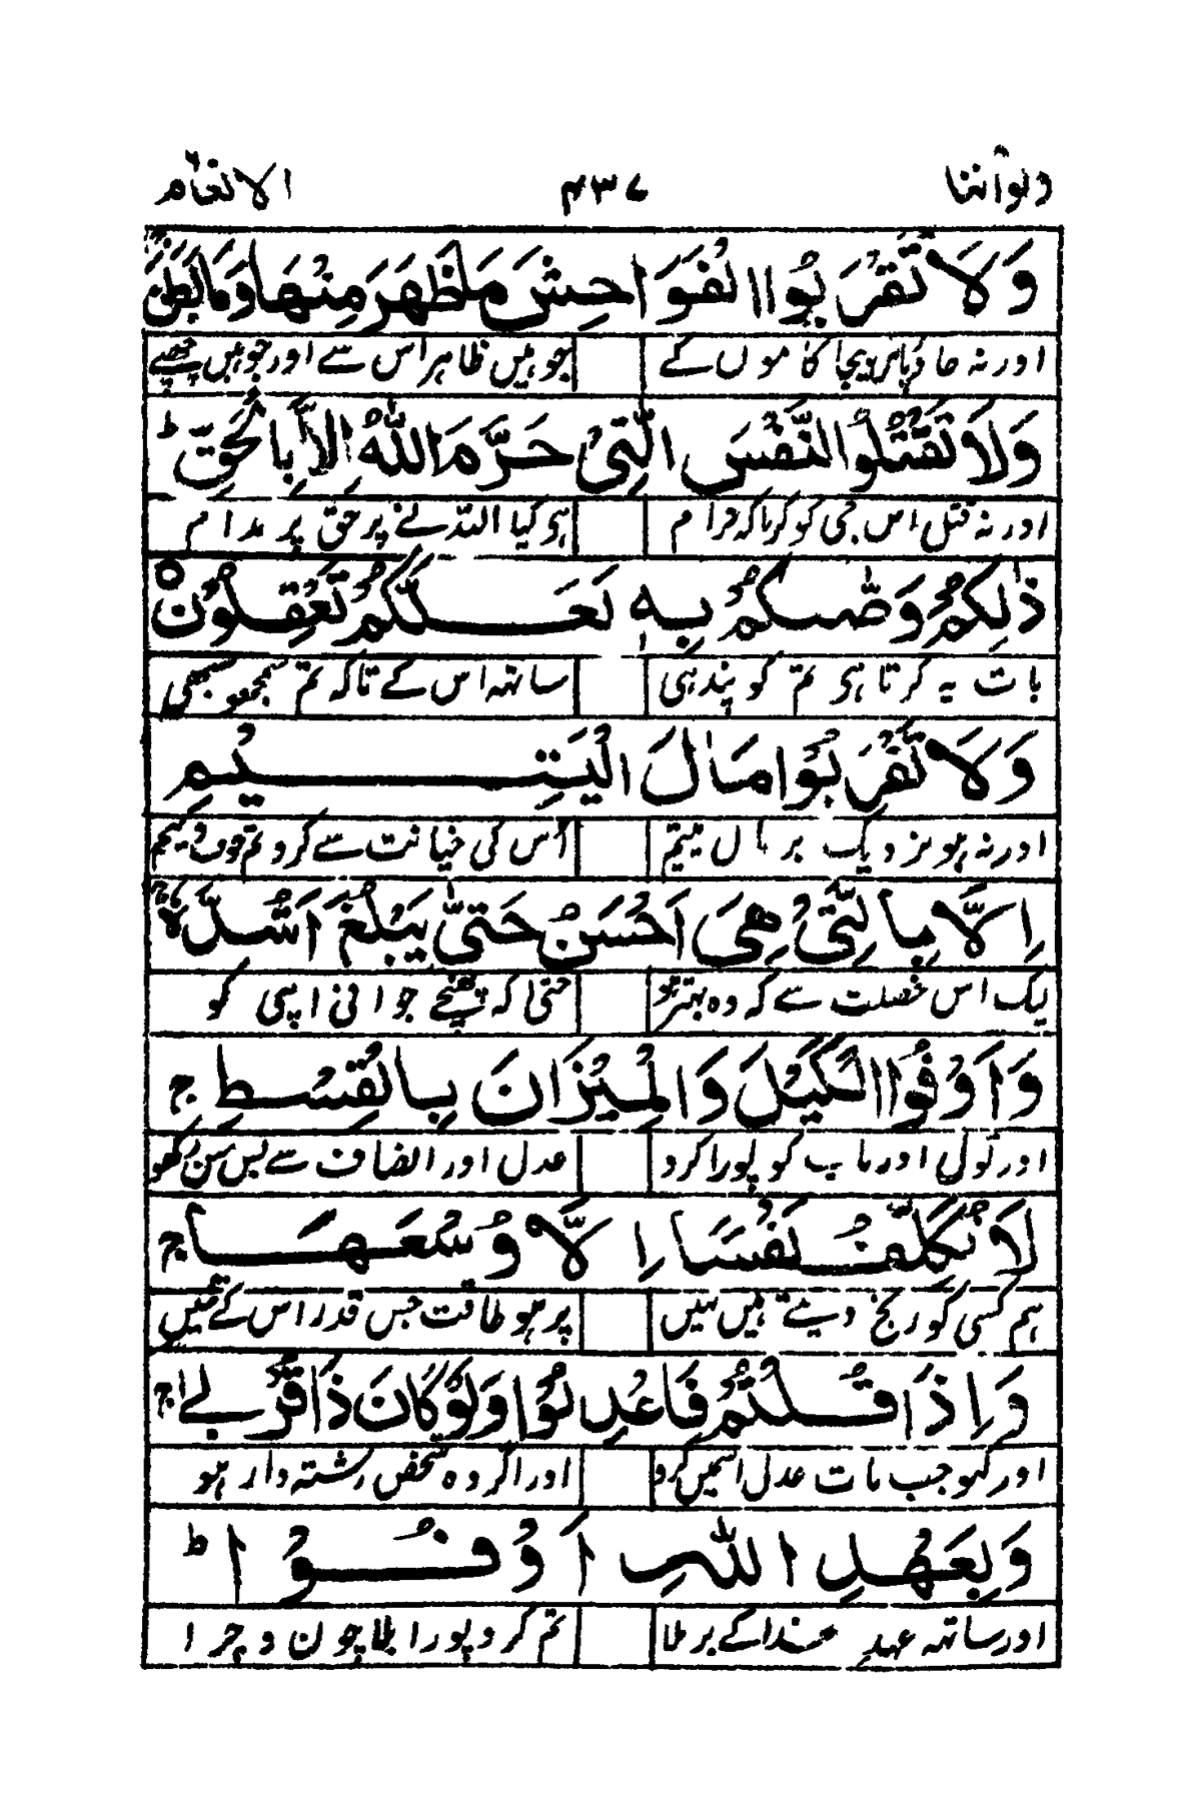 ولواننا ٤٣٧ الانعام
وَلَا تَقْرَبُوا الْفَوَاحِشَ مَا ظَهَرَ مِنْهَا وَمَا بَطَنَ
اور نہ جاؤ پاس بیجا کاموں کے جو ہیں ظاہر اس سے اور جو ہیں چھپے
وَلَا تَقْتُلُوا النَّفْسَ الَّتِیْ حَرَّمَ اللّٰهُ اِلَّا بِالْحَقِّ ط
اور نہ قتل اس جی کو کرنا کہ حرام ہو کیا اللہ نے پر حق پر مدام
ذٰلِكُمْ وَصّٰىكُمْ بِهٖ لَعَلَّكُمْ تَعْقِلُوْنَ ○
بات یہ کرتا ہو تم کو پند ہی ساتھ اس کے تاکہ تم سمجھو سبھی
وَلَا تَقْرَبُوْا مَالَ الْیَتِیْمِ
اور نہ ہو نزدیک بر مال یتیم اُس کی خیانت سے کرو تم خوف و بیم
اِلَّا بِالَّتِیْ هِیَ اَحْسَنُ حَتّٰی یَبْلُغَ اَشُدَّهٗ ج
لیک اس خصلت سے کہ وہ بہتر ہو حتٰی کہ پہنچے جوانی اپنی کو
وَاَوْفُوا الْكَیْلَ وَالْمِیْزَانَ بِالْقِسْطِ ج
اور تولی اور ماپ کو پورا کرو عدل اور انصاف سے بس سن رکھو
لَا نُكَلِّفُ نَفْسًا اِلَّا وُسْعَهَا ج
ہم کسی کو رنج دیتے ہیں نہیں پر ہو طاقت جس قدر اس کے تئیں
وَاِذَا قُلْتُمْ فَاعْدِلُوْا وَلَوْ كَانَ ذَا قُرْبٰی ج
اور کہو جب بات عدل اسمیں کرو اور اگر وہ شخص رشتہ دار ہو
وَبِعَهْدِ اللّٰهِ اَوْفُوْا ط
اور ساتھ عہدِ خدا کے برملا تم کرو پورا بلا چون و چرا